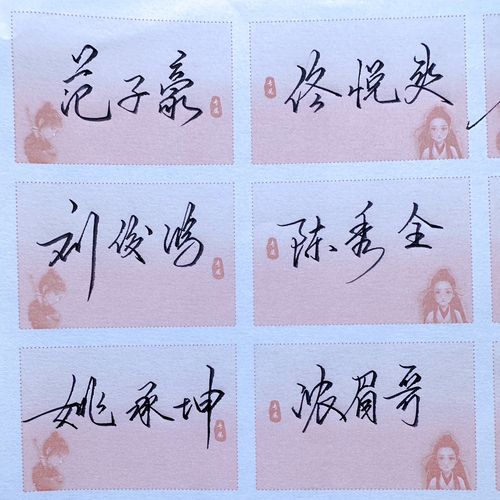 范子豪
佟悦爽
刘俊鸿
陈秀全
姚承坤
浓眉哥